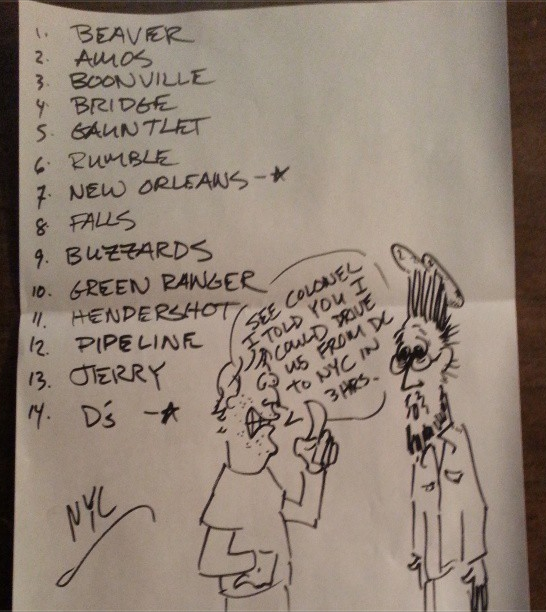 1. BEAVER
2. AMOS
3. BOONVILLE
4. BRIDGE
5. GAUNTLET
6. RUMBLE
7. NEW ORLEANS -★
8. FALLS
9. BUZZARDS
10. GREEN RANGER
11. HENDERSHOT
12. PIPELINE
13. JERRY
14. D's -★
SEE COLONEL
I TOLD YOU I
COULD DRIVE
US FROM DC
TO NYC IN
3 HRS.
NYC